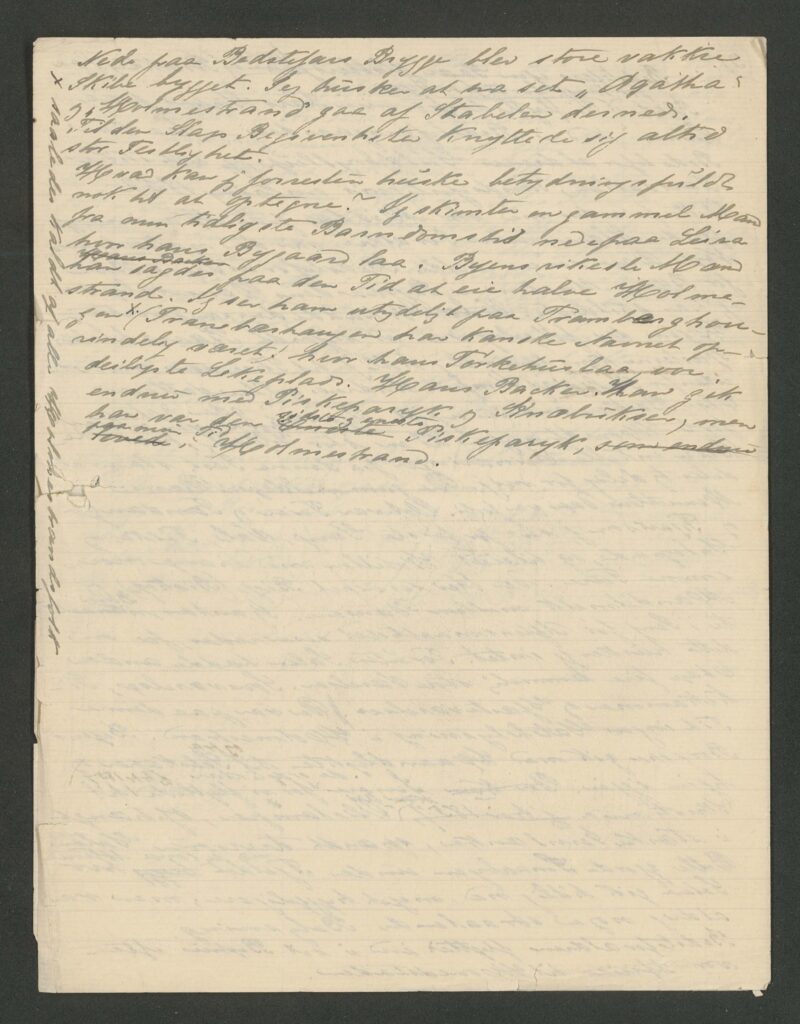 Nede paa Bedstefars Brygge blev store vakkre
Skibe bygget. Jeg husker at ha set „Agatha“
og „Holmestrand“ gaa af Stabelen dernede.
Til den Slags Begivenheter knyttede sig altid
stor Festlighet.
Hvad kan jeg forresten huske betydningsfuldt
nok til at optegne? Jeg skimter en gammel Mand
fra min tidligste Barndomstid nede paa Leira
hvor hans Bygaard laa. Byens rikeste Mand
Hans Backer
han sagdes paa den Tid at eie halve Holme-
strand. Jeg ser ham utydeligt paa Tramberghou-
gen x (Tranebærhaugen har kanske Navnet op-
rindelig været) hvor hans Törkehus laa, vor
deiligste Lekeplads. Hans Backer. Han gik
endnu med Piskeparyk og Knæbukser, men
han var den sidste og eneste Piskeparyk, som endnu
paa min Tid
i Holmestrand.
x saaledes kaldt af alle Holmestrandsfolk